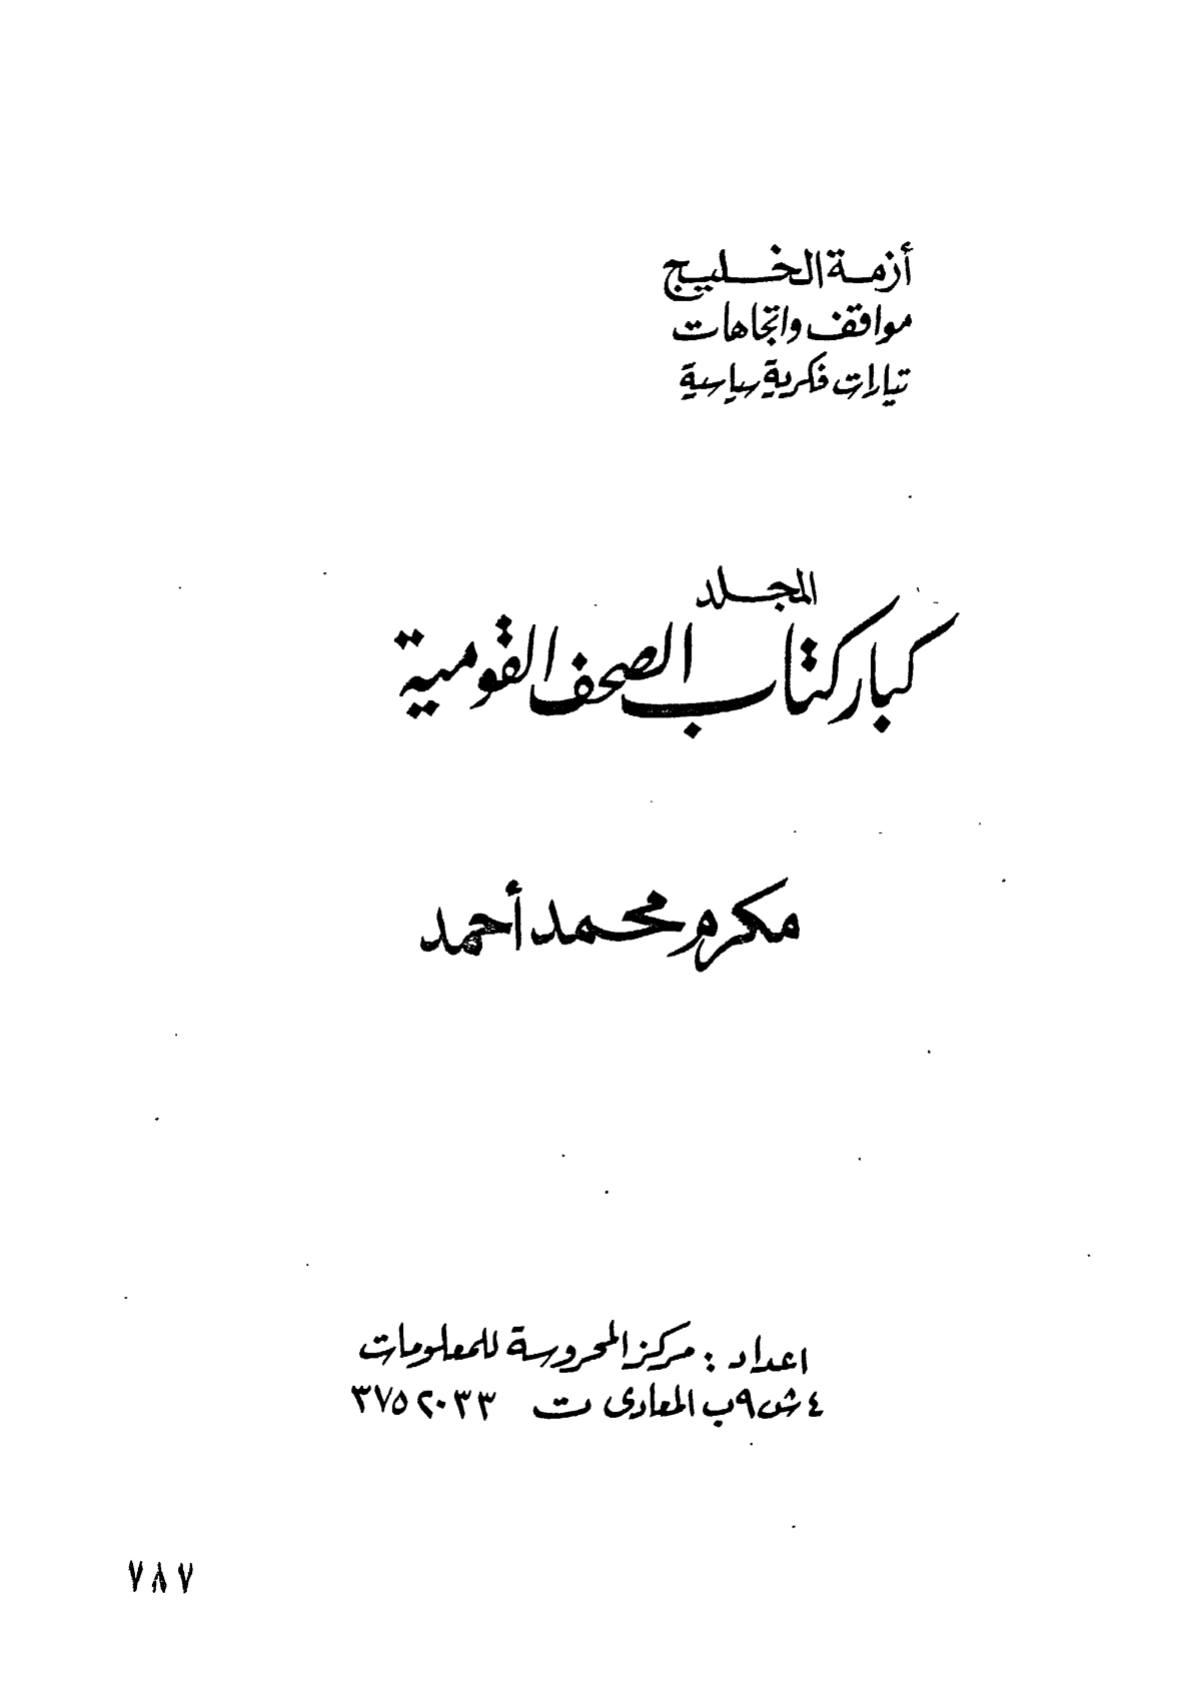 أزمة الخليج
مواقف واتجاهات
تيارات فكرية سياسية
المجلد
كبار كتاب الصحف القومية
مكرم محمد أحمد
اعداد : مركز المحروسة للمعلومات
٤ ش ٩ب المعادى ت ٣٧٥٢٠٣٣
٧٨٧